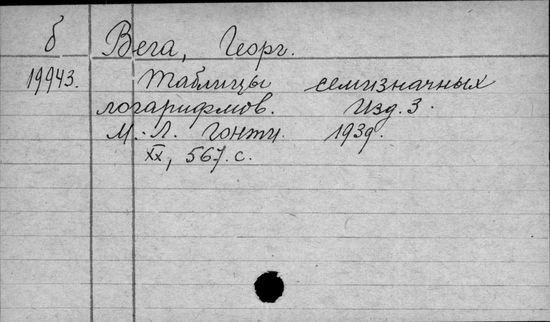 б Вега, Георг.
19943. Таблицы семизначных
логарифмов. Изд. 3.
М.-Л. Гонти. 1939.
XX, 567. с.